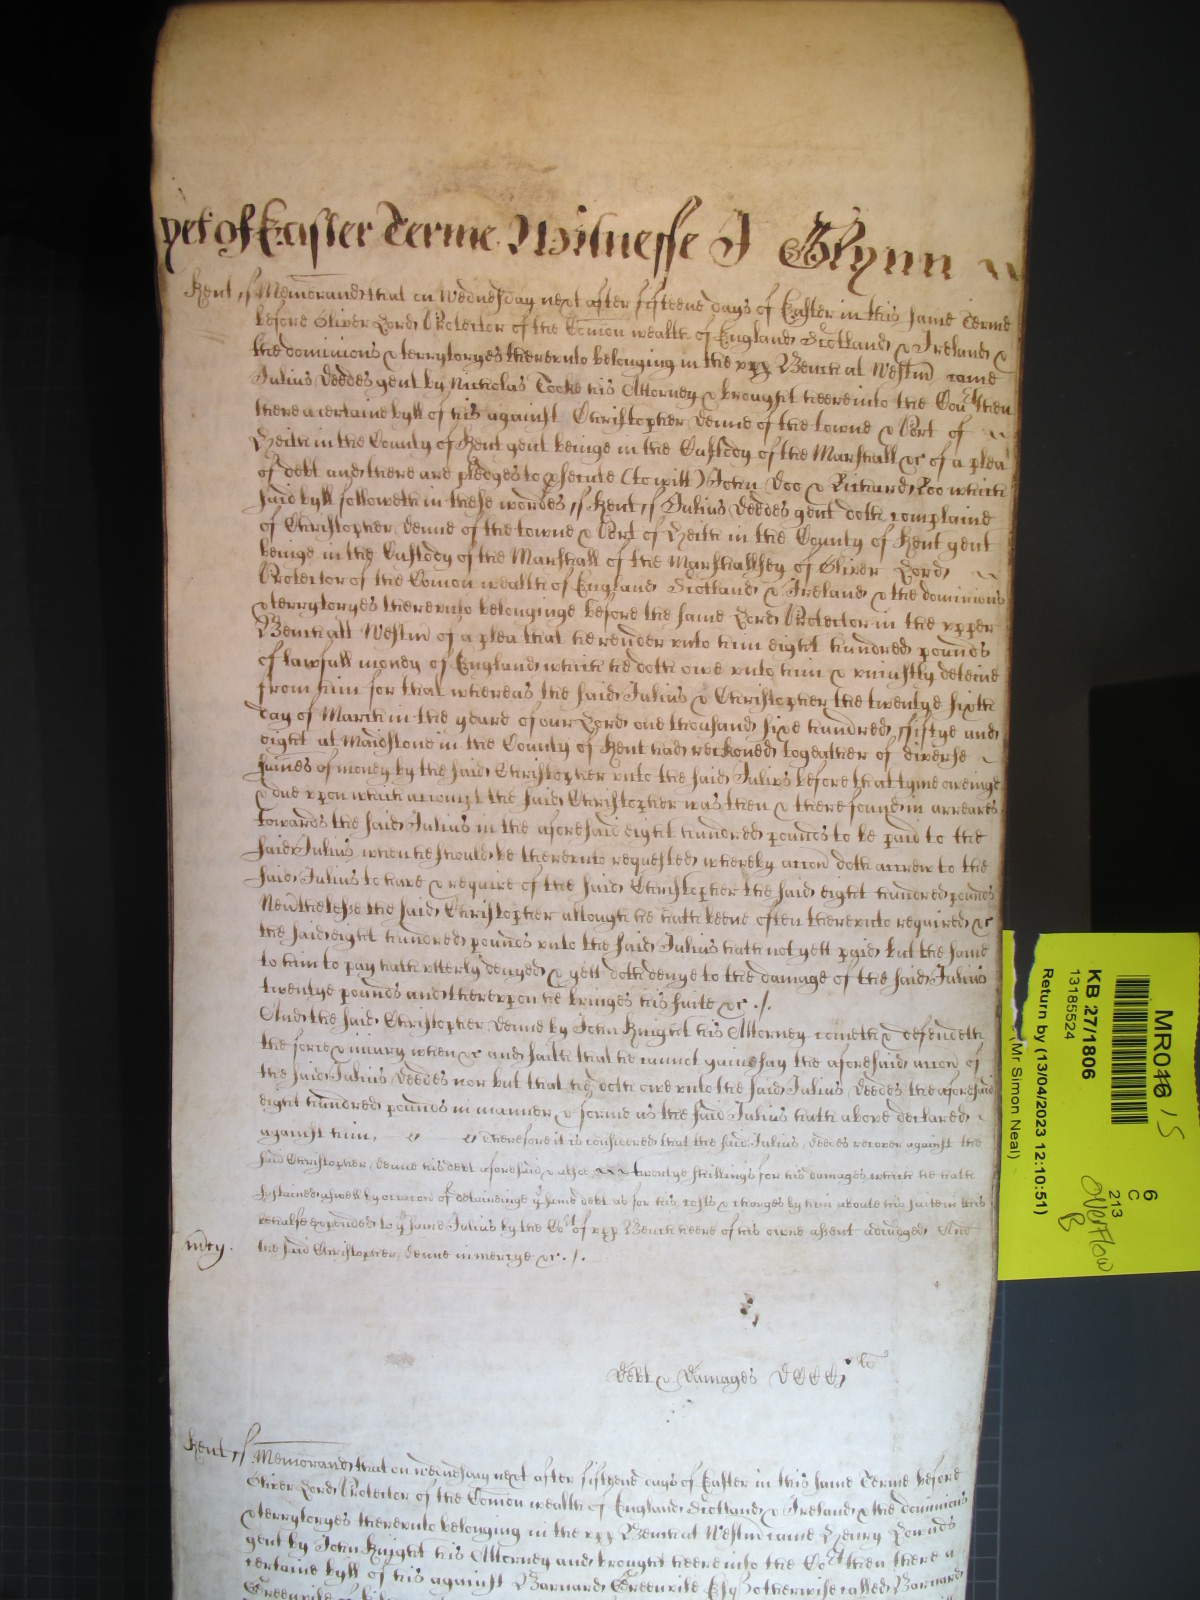 yet of Easter Terme Witnesse J Glynn
Kent ss Memorand that on Wednesday next after fifteene dayes of Easter in this same Terme
before Oliver Lord Protector of the Comon wealth of England Scotland & Ireland &
the dominions & terrytoryes thereunto belonging in the upp Bench at Westm came
Julius Deedes gent by Nicholas Tooke his Attorney & brought heere into the Court then
there a certaine byll of his against Christopher Denne of the towne & Port of
Heith in the County of Kent gent beinge in the Custody of the Marshall &c of a plea
of debt and there are pledges to psecute (to witt) John Doo & Richard Roo which
said byll followeth in these wordes ss Kent ss Julius Deedes gent doth complaine
of Christopher Denne of the towne & Port of Heith in the County of Kent gent
beinge in the Custody of the Marshall of the Marshallsey of Oliver Lord
Protector of the Comon wealth of England Scotland & Ireland & the dominions
& terrytoryes thereunto belonginge before the same Lord Protector in the upper
Bench att Westm of a plea that he render unto him eight hundred pounds
of lawfull money of England which he doth owe unto him & uniustly deteine
from him for that whereas the said Julius & Christopher the twentye sixth
day of March in the yeare of our Lord one thousand sixe hundred fiftye and
eight at Maidstone in the County of Kent had reckoned togeather of diverse
sumes of money by the said Christopher unto the said Julius before that tyme oweinge
& due upon which accompt the said Christopher was then & there found in arreares
towards the said Julius in the aforesaid eight hundred pounds to be paid to the
said Julius when he should be thereunto requested whereby accon doth accrew to the
said Julius to have & require of the said Christopher the said eight hundred pounds
Nevthelesse the said Christopher although he hath beene often thereunto required &c
the said eight hundred pounds unto the said Julius hath not yett paid but the same
to him to pay hath utterly denyed & yett doth denye to the damage of the said Julius
twentye pounds and thereupon he bringes his suite &c ./.
And the said Christopher Denne by John Knight his Attorney cometh & defendeth
the force & iniury when &c and saith that he cannot gainesay the aforesaid accon of
the said Julius Deedes nor but that hee doth owe unto the said Julius Deedes the aforesaid
eight hundred pounds in manner & forme as the said Julius hath above declared
against him Therefore it is considered that the said Julius Deedes recover against the
said Christopher Denne his debt aforesaid & alsoe twentye shillings for his damages which he hath
susteined aswell by occasion of detaindinge ye same debt as for his costs & charges by him aboute his suite in this
behalfe expended to ye same Julius by the Cot of upp Bench heere of his owne assent adiudged And
mcy. the said Christopher Denne in mercye &c ./.
Debt & Damages DCCCj li
Kent ss Memorand that on Wednesday next after fifteene dayes of Easter in this same Terme before
Oliver Lord Protector of the Comon wealth of England Scotland & Ireland & the dominions
& terrytoryes thereunto belonging in the upp Bench at Westm came Henry Lownds
gent by John Knight his Attorney and brought heere into the Cot then there a
certaine byll of his against Barnard Greenvile Esq otherwise called Barnard
Greenvile of
MR016 / 5
KB 27/1806
13185524
Return by (13/04/2023 12:10:51)
(Mr Simon Neal)
6
C
213
Overflow
B